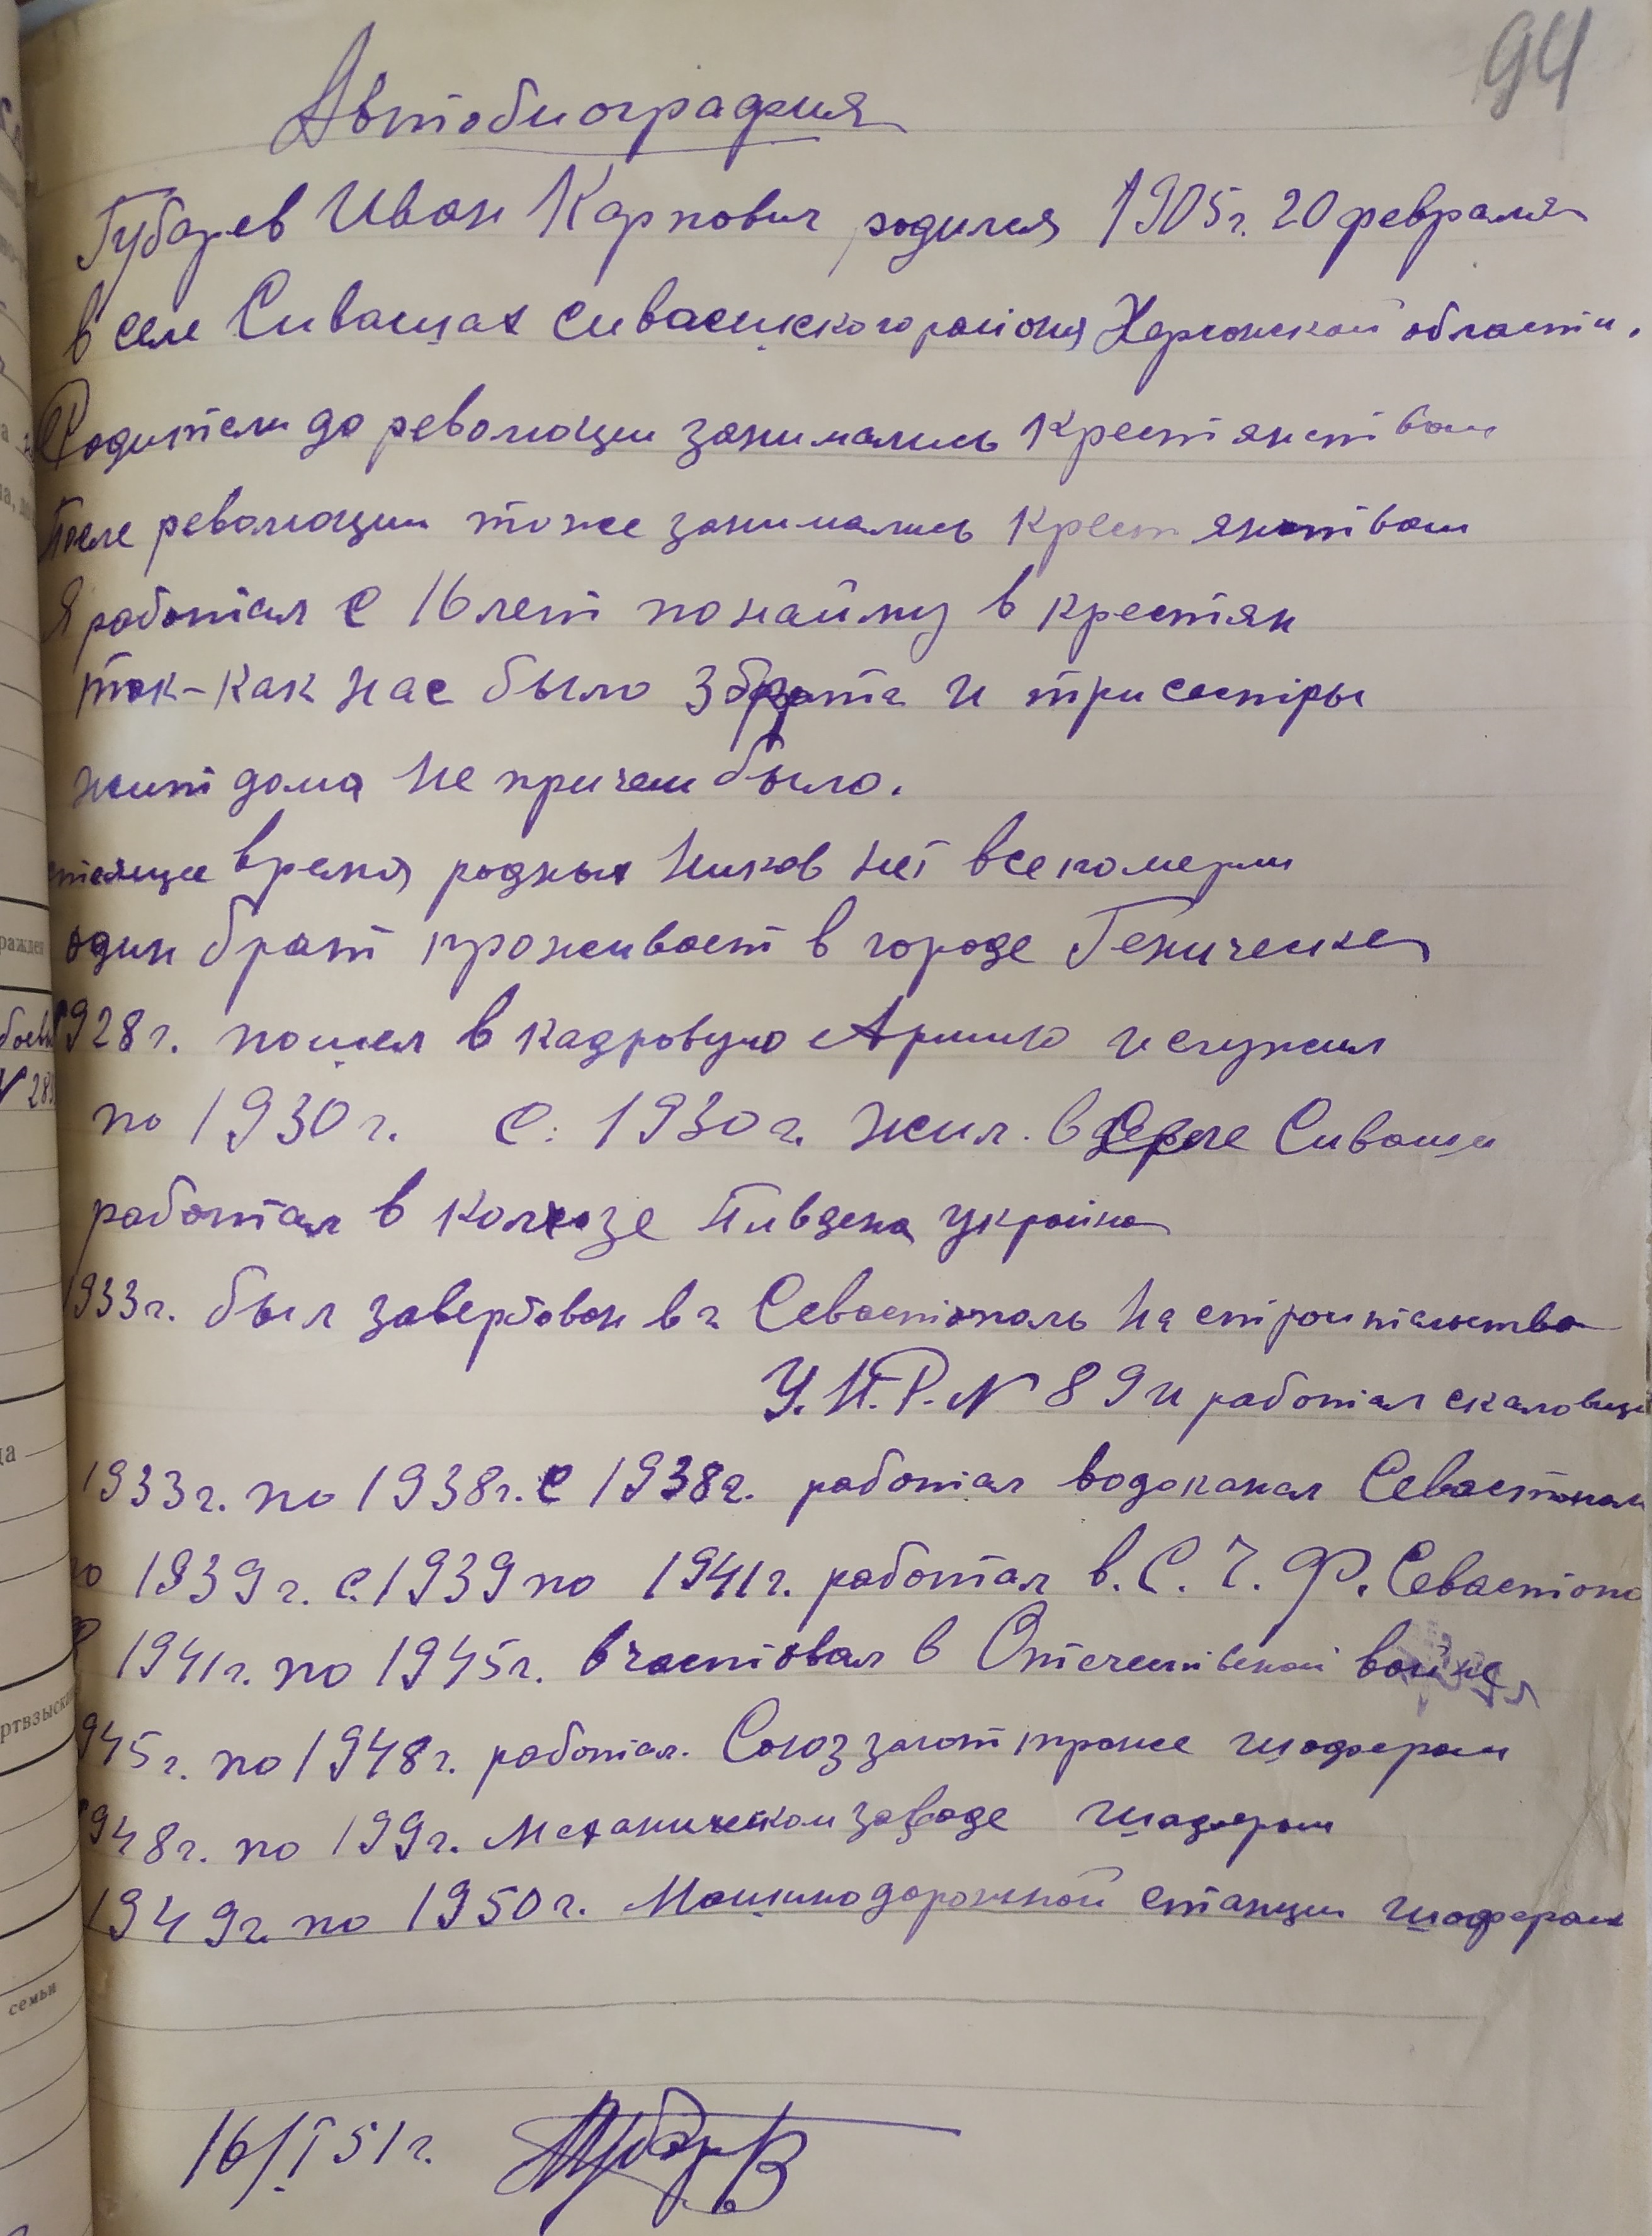 94
Автобиография
Губарев Иван Карпович родился 1905г. 20 февраля
в селе Сивашах Сивашского района Херсонской области.
Родители до революции занимались крестянством
После революции тоже занимались крестянством
Я работал с 16 лет по найму в крестян
так-как нас было 3 брата и три сестры
жит дома не причем было.
стоящее время родных ников нет все померли
один брат проживает в городе Геническе
1928г. пошел в кадровую Армию и служил
по 1930г. С. 1930г. жил. в селе Сиваши
работал в колхозе Пивдена украина
1933г. был завербован в г Севастополь на строитальство
У.Н.Р. N 89 и работал скаловщи
1933г. по 1938г. С 1938г. работал водоканал Севастопол
по 1939г. с. 1939 по 1941г. работал в. С. Ч. Ф. Севастопо
1941г. по 1945г. вчаствовал в Отечественой войне
945г. по 1948г. работал. Союззаготтранс шофером
948г. по 199г. Механическом заводе шофером
1949г. по 1950г. Машинодорожной станции шофером
16/I 51г.
ражден
боев
N 28
ртвзыска
семьи